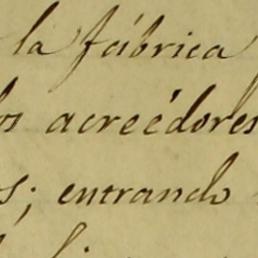 la fábrica
los acreédores
s; entrando